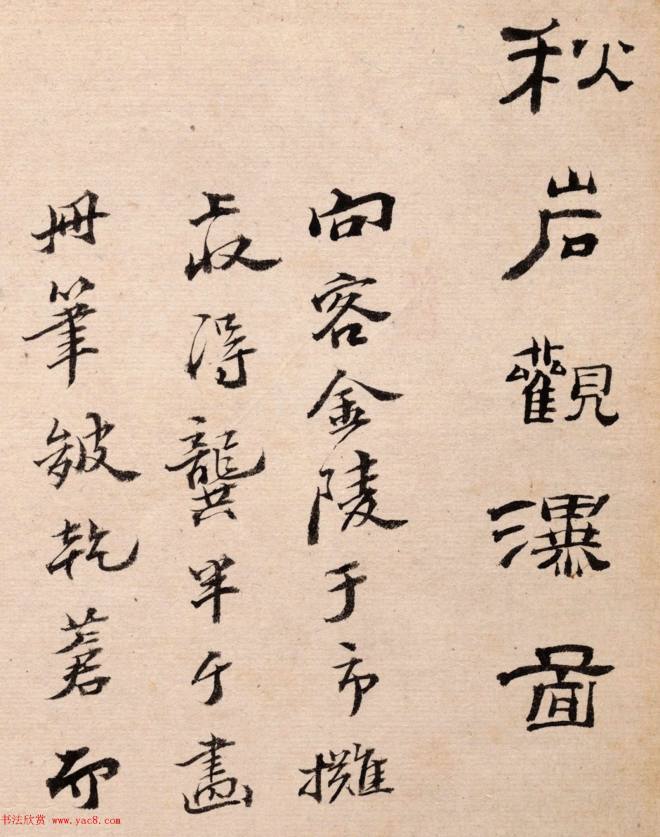 秋岩觀瀑圖
向客金陵于市攤
上收得龔半千畫
冊筆皴乾蒼而
书法欣赏 www.yac8.com